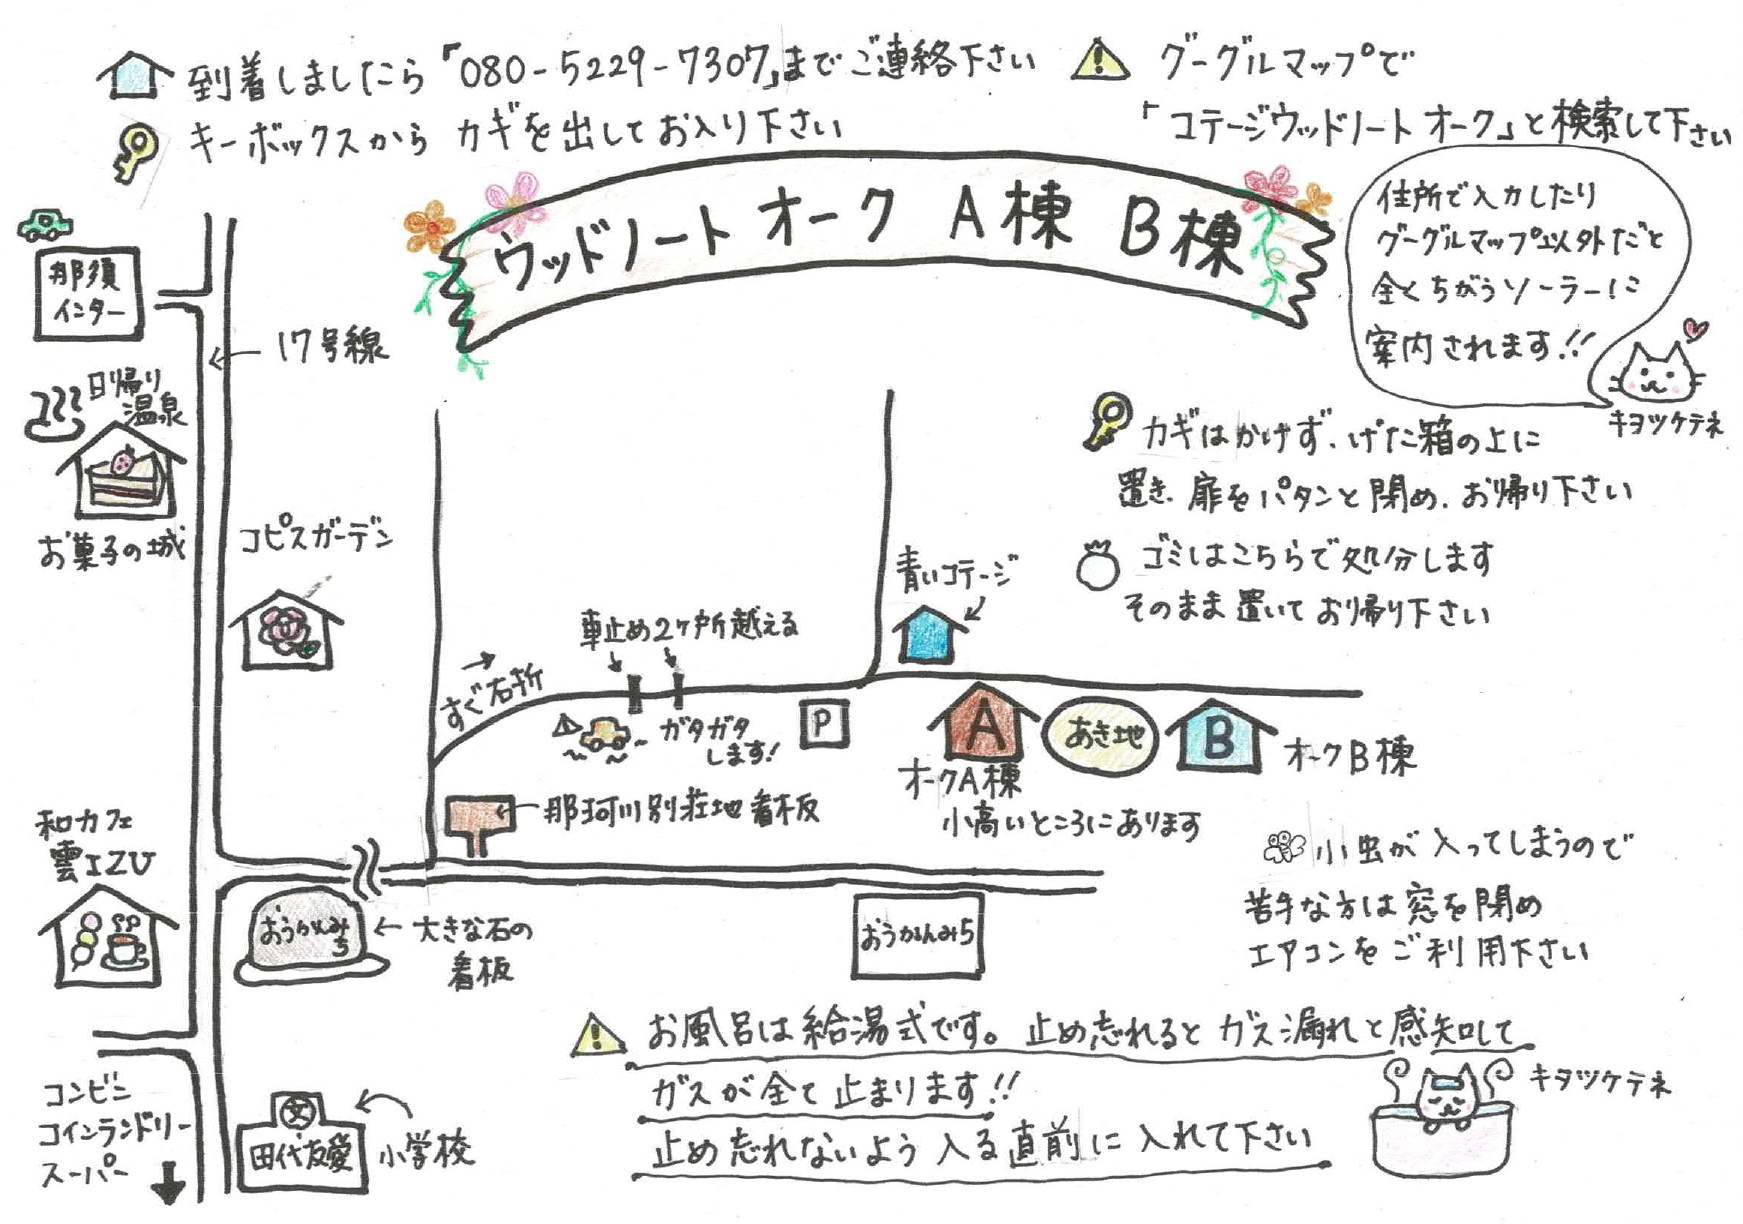 到着しましたら「080-5229-7307」までご連絡下さい
キーボックスから カギを出してお入り下さい
グーグルマップで
「コテージウッドノート オーク」と検索して下さい
ウッドノート オーク A棟 B棟
住所で入力したり
グーグルマップ以外だと
全くちがうソーラーに
案内されます!!
キヨツケテネ
那須
インター
17号線
日帰り
温泉
お菓子の城
コピスガーデン
カギはかけず、げた箱の上に
置き、扉をパタンと閉め、お帰り下さい
ゴミはこちらで処分します
そのまま置いてお帰り下さい
青いコテージ
車止め2ヶ所越える
すぐ右折
ガタガタ
します!
P
A
あき地
B
オークA棟
小高いところにあります
オークB棟
那珂川別荘地看板
和カフェ
雲IZU
おうかんみち
大きな石の
看板
おうかんみち
小虫が入ってしまうので
苦手な方は窓を閉め
エアコンをご利用下さい
お風呂は給湯式です。止め忘れるとガス漏れと感知して
ガスが全て止まります!!
止め忘れないよう入る直前に入れて下さい
キヲツケテネ
コンビニ
コインランドリー
スーパー
文
田代友愛
小学校